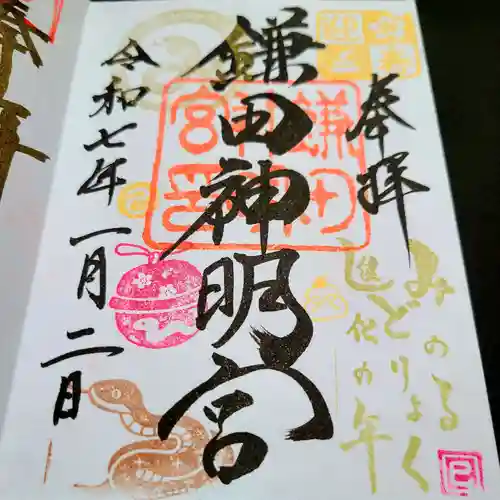 奉拝
鎌田神明宮
令和七年一月二日
みのる
どりょく
進化の年
巳